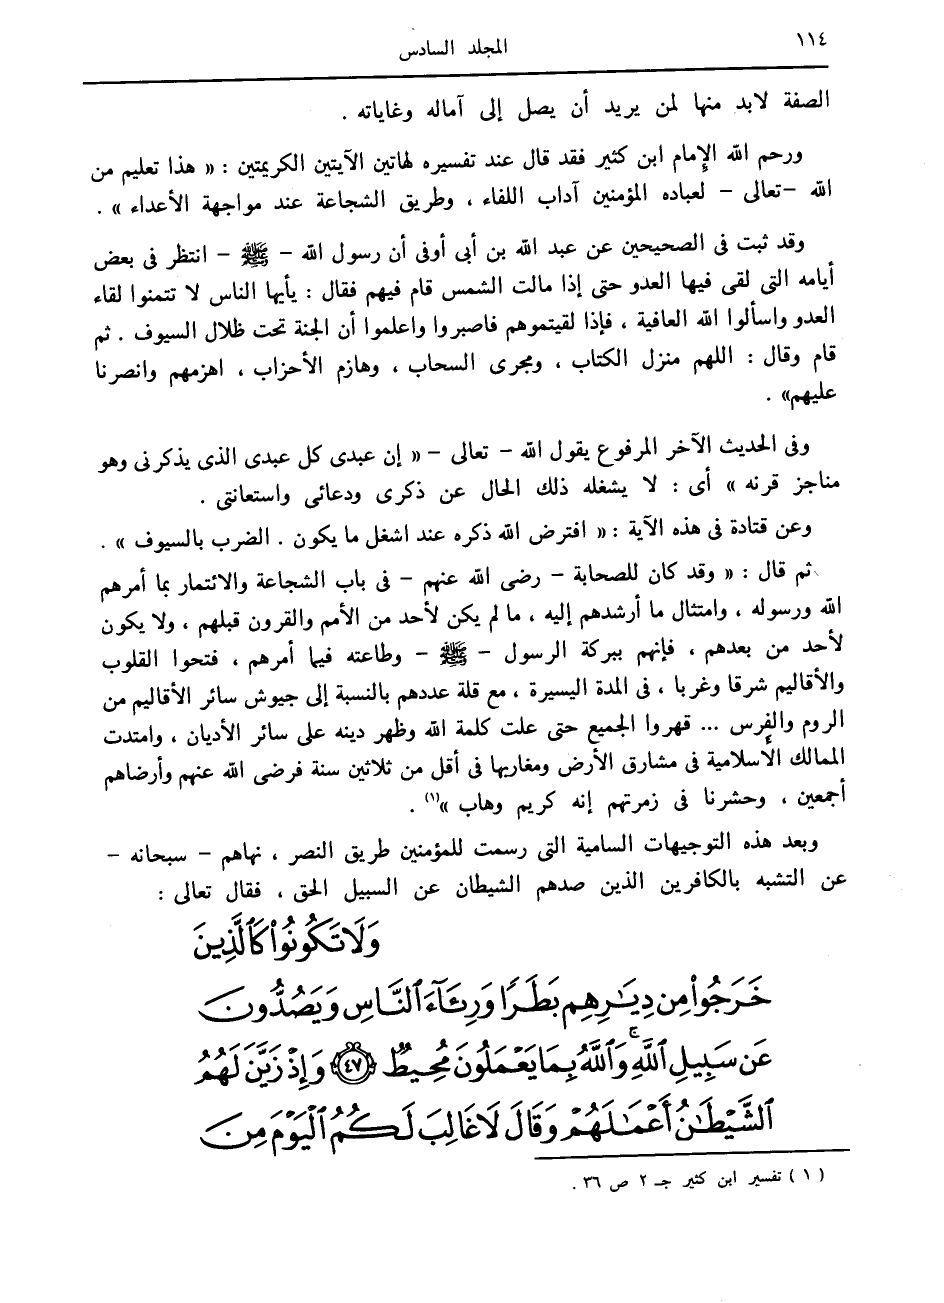 ١١٤
المجلد السادس
الصفة لابد منها لمن يريد أن يصل إلى آماله وغاياته .
ورحم الله الإمام ابن كثير فقد قال عند تفسيره لهاتين الآيتين الكريمتين : « هذا تعليم من
الله –تعالى – لعباده المؤمنين آداب اللقاء ، وطريق الشجاعة عند مواجهة الأعداء » .
وقد ثبت فى الصحيحين عن عبد الله بن أبى أوفى أن رسول الله – ﷺ – انتظر فى بعض
أيامه التى لقى فيها العدو حتى إذا مالت الشمس قام فيهم فقال : يأيها الناس لا تتمنوا لقاء
العدو واسألوا الله العافية ، فإذا لقيتموهم فاصبروا واعلموا أن الجنة تحت ظلال السيوف . ثم
قام وقال : اللهم منزل الكتاب ، ومجرى السحاب ، وهازم الأحزاب ، اهزمهم وانصرنا
عليهم» .
وفى الحديث الآخر المرفوع يقول الله – تعالى –« إن عبدى كل عبدى الذى يذكرنى وهو
مناجز قرنه » أى : لا يشغله ذلك الحال عن ذكرى ودعائى واستعانتى .
وعن قتادة فى هذه الآية :« افترض الله ذكره عند اشغل ما يكون . الضرب بالسيوف » .
ثم قال : « وقد كان للصحابة – رضى الله عنهم – فى باب الشجاعة والائتمار بما أمرهم
الله ورسوله ، وامتثال ما أرشدهم إليه ، ما لم يكن لأحد من الأمم والقرون قبلهم ، ولا يكون
لأحد من بعدهم ، فإنهم ببركة الرسول – ﷺ – وطاعته فيما أمرهم ، فتحوا القلوب
والأقاليم شرقا وغربا ، فى المدة اليسيرة ، مع قلة عددهم بالنسبة إلى جيوش سائر الأقاليم من
الروم والفرس ... قهروا الجميع حتى علت كلمة الله وظهر دينه على سائر الأديان ، وامتدت
الممالك الإسلامية فى مشارق الأرض ومغاربها فى أقل من ثلاثين سنة فرضى الله عنهم وأرضاهم
أجمعين ، وحشرنا فى زمرتهم إنه كريم وهاب »(١) .
وبعد هذه التوجيهات السامية التى رسمت للمؤمنين طريق النصر ، نهاهم – سبحانه –
عن التشبه بالكافرين الذين صدهم الشيطان عن السبيل الحق ، فقال تعالى :
وَلَا تَكُونُوا۟ كَٱلَّذِينَ
خَرَجُوا۟ مِن دِيَـٰرِهِم بَطَرًا وَرِئَآءَ ٱلنَّاسِ وَيَصُدُّونَ
عَن سَبِيلِ ٱللَّهِ ۚ وَٱللَّهُ بِمَا يَعْمَلُونَ مُحِيطٌ ﴿٤٧﴾ وَإِذْ زَيَّنَ لَهُمُ
ٱلشَّيْطَـٰنُ أَعْمَـٰلَهُمْ وَقَالَ لَا غَالِبَ لَكُمُ ٱلْيَوْمَ مِنَ
( ١ ) تفسير ابن كثير جـ ٢ ص ٣٦ .